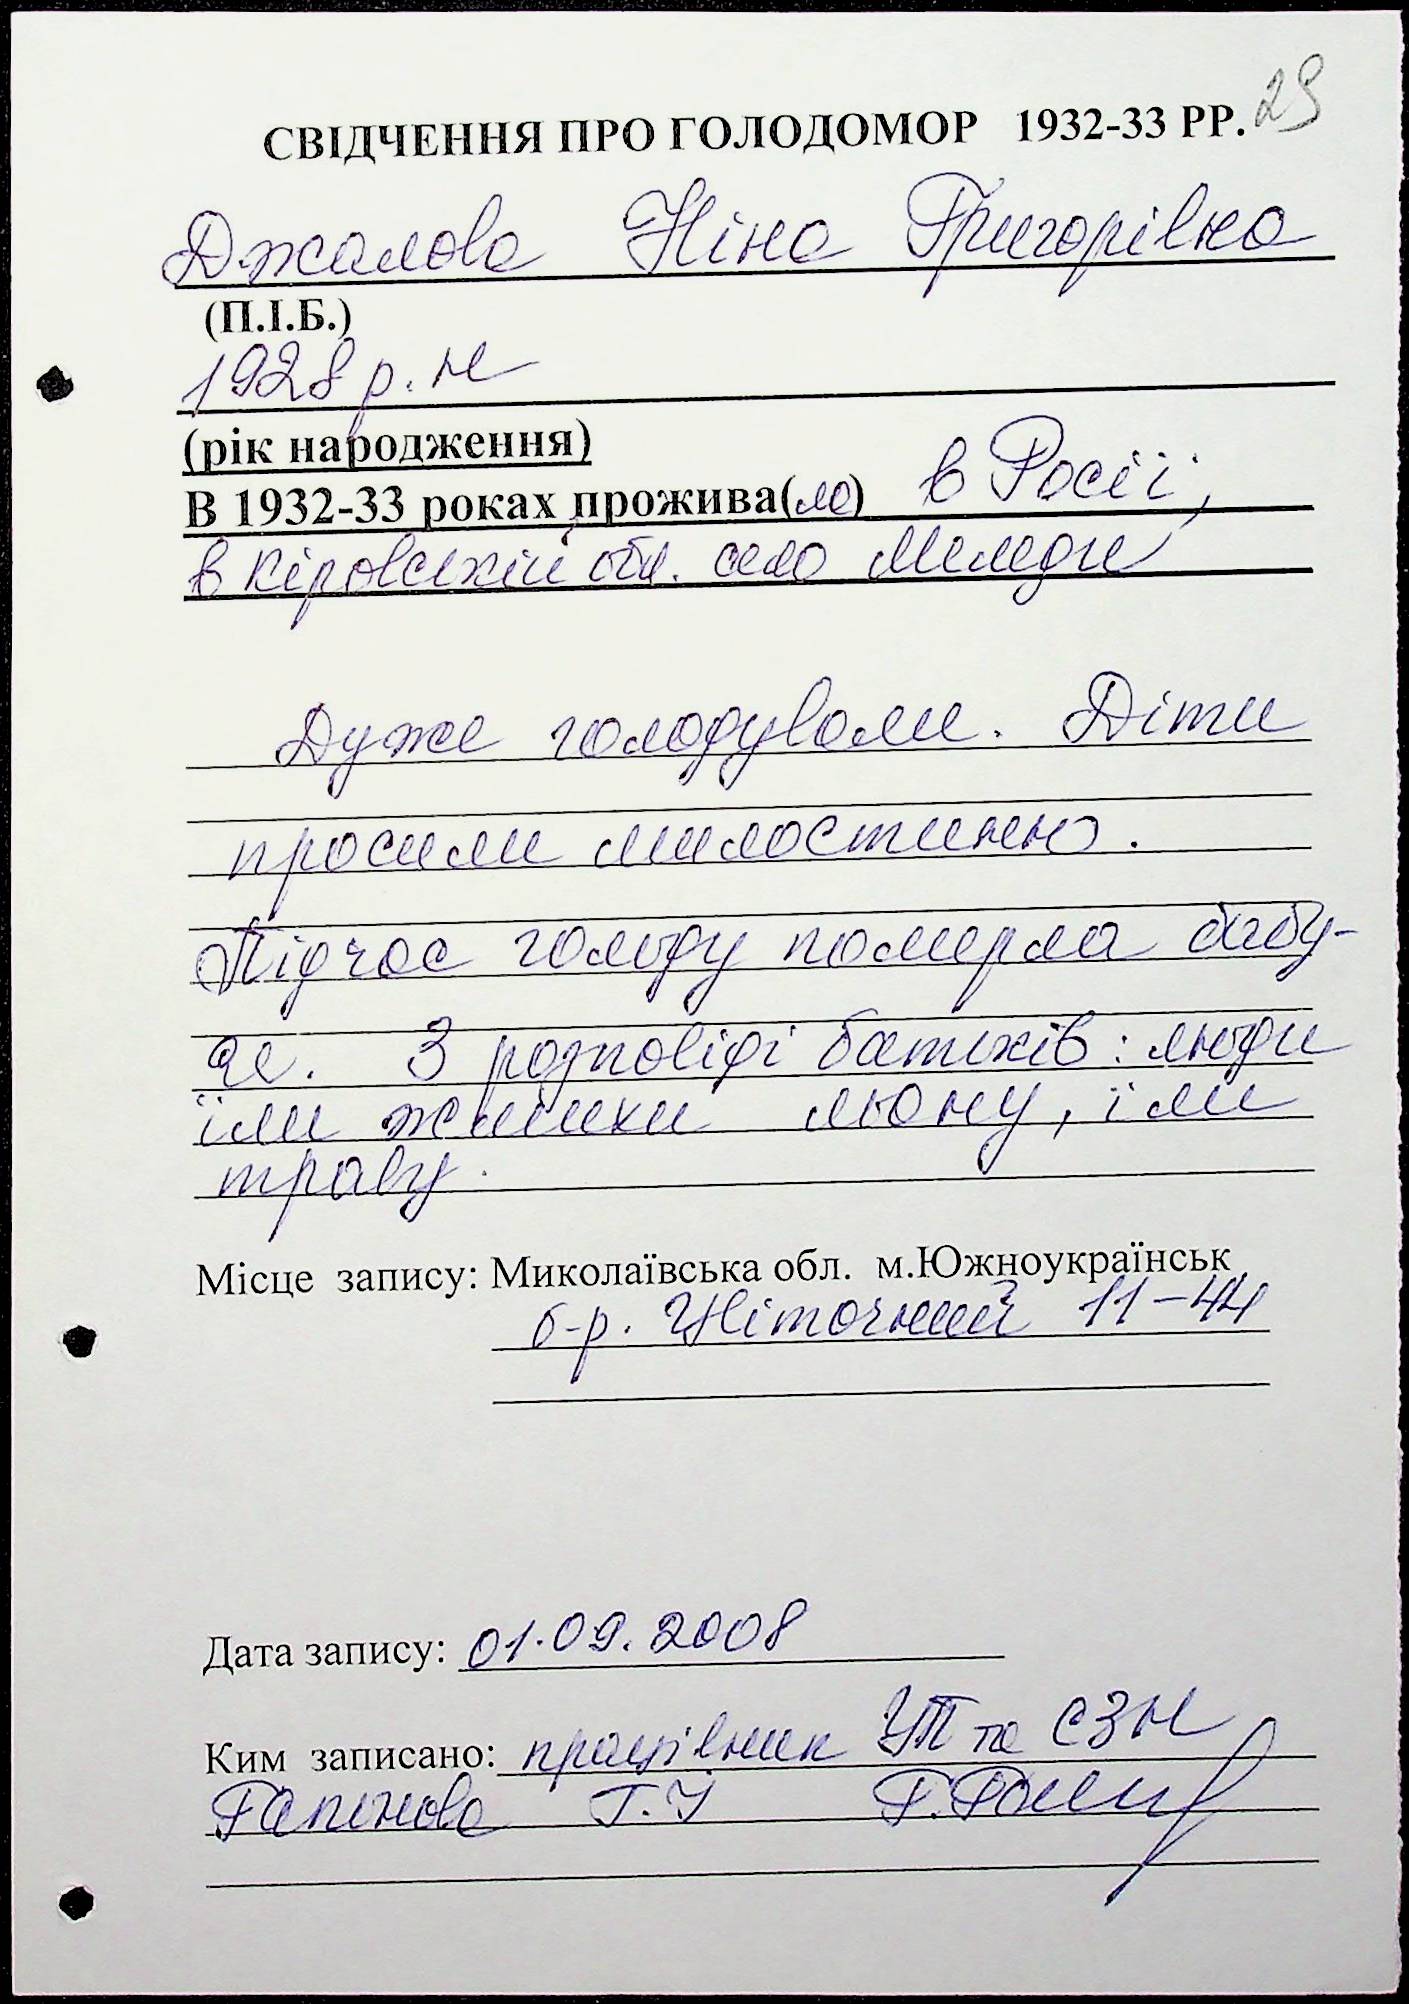 29
СВІДЧЕННЯ ПРО ГОЛОДОМОР 1932-33 РР.
Джалова Ніна Григорівна
(П.І.Б.)
1928 р. н
(рік народження)
В 1932-33 роках прожива(ла) в Росії,
в Кіровській обл. село Меляди
Дуже голодували. Діти
просили милостиню.
Підчас голоду померла бабу-
ся. З розповіді батьків: люди
їли жмики льону, їли
траву.
Місце запису: Миколаївська обл. м.Южноукраїнськ
б-р. Цвіточний 11-44
Дата запису: 01.09.2008
Ким записано: працівник УП та СЗН
Гапонова Г.І